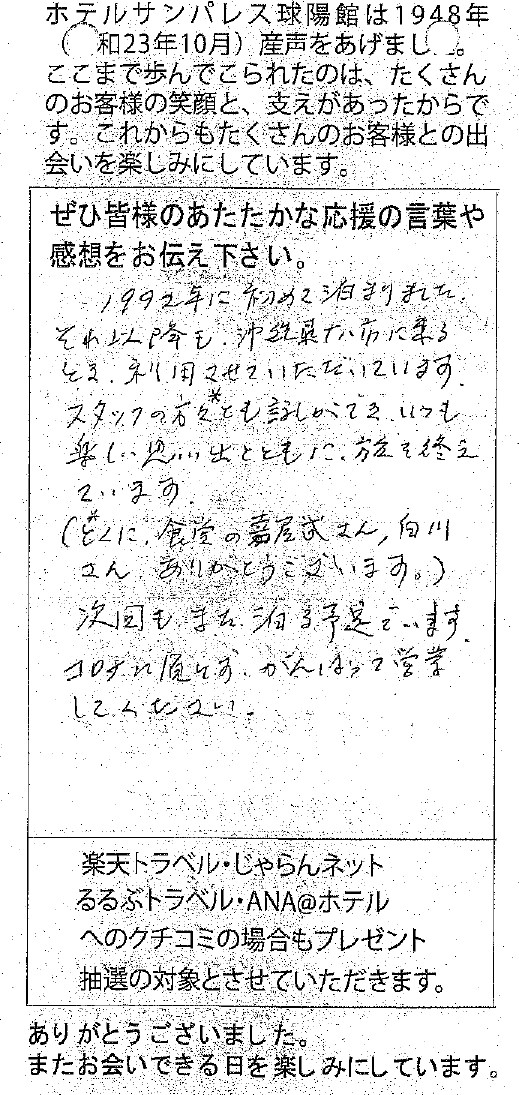 ホテルサンパレス球陽館は1948年
(和23年10月)産声をあげまし。
ここまで歩んでこられたのは、たくさん
のお客様の笑顔と、支えがあったからで
す。これからもたくさんのお客様との出
会いを楽しみにしています。
ぜひ皆様のあたたかな応援の言葉や
感想をお伝え下さい。
1992年に初めて泊まりました。
それ以降も、沖縄県那覇市に来る
とき、利用させていただいています。
スタッフの方々*とも話しができ、いつも
楽しい思い出とともに、旅を終え
ています。
(*とくに、食堂の嘉屋武さん,白川
さん、ありがとうございます。)
次回も、また、泊る予定でいます。
コロナに屈せず、がんばって営業
してください。
楽天トラベル・じゃらんネット
るるぶトラベル・ANA@ホテル
へのクチコミの場合もプレゼント
抽選の対象とさせていただきます。
ありがとうございました。
またお会いできる日を楽しみにしています。